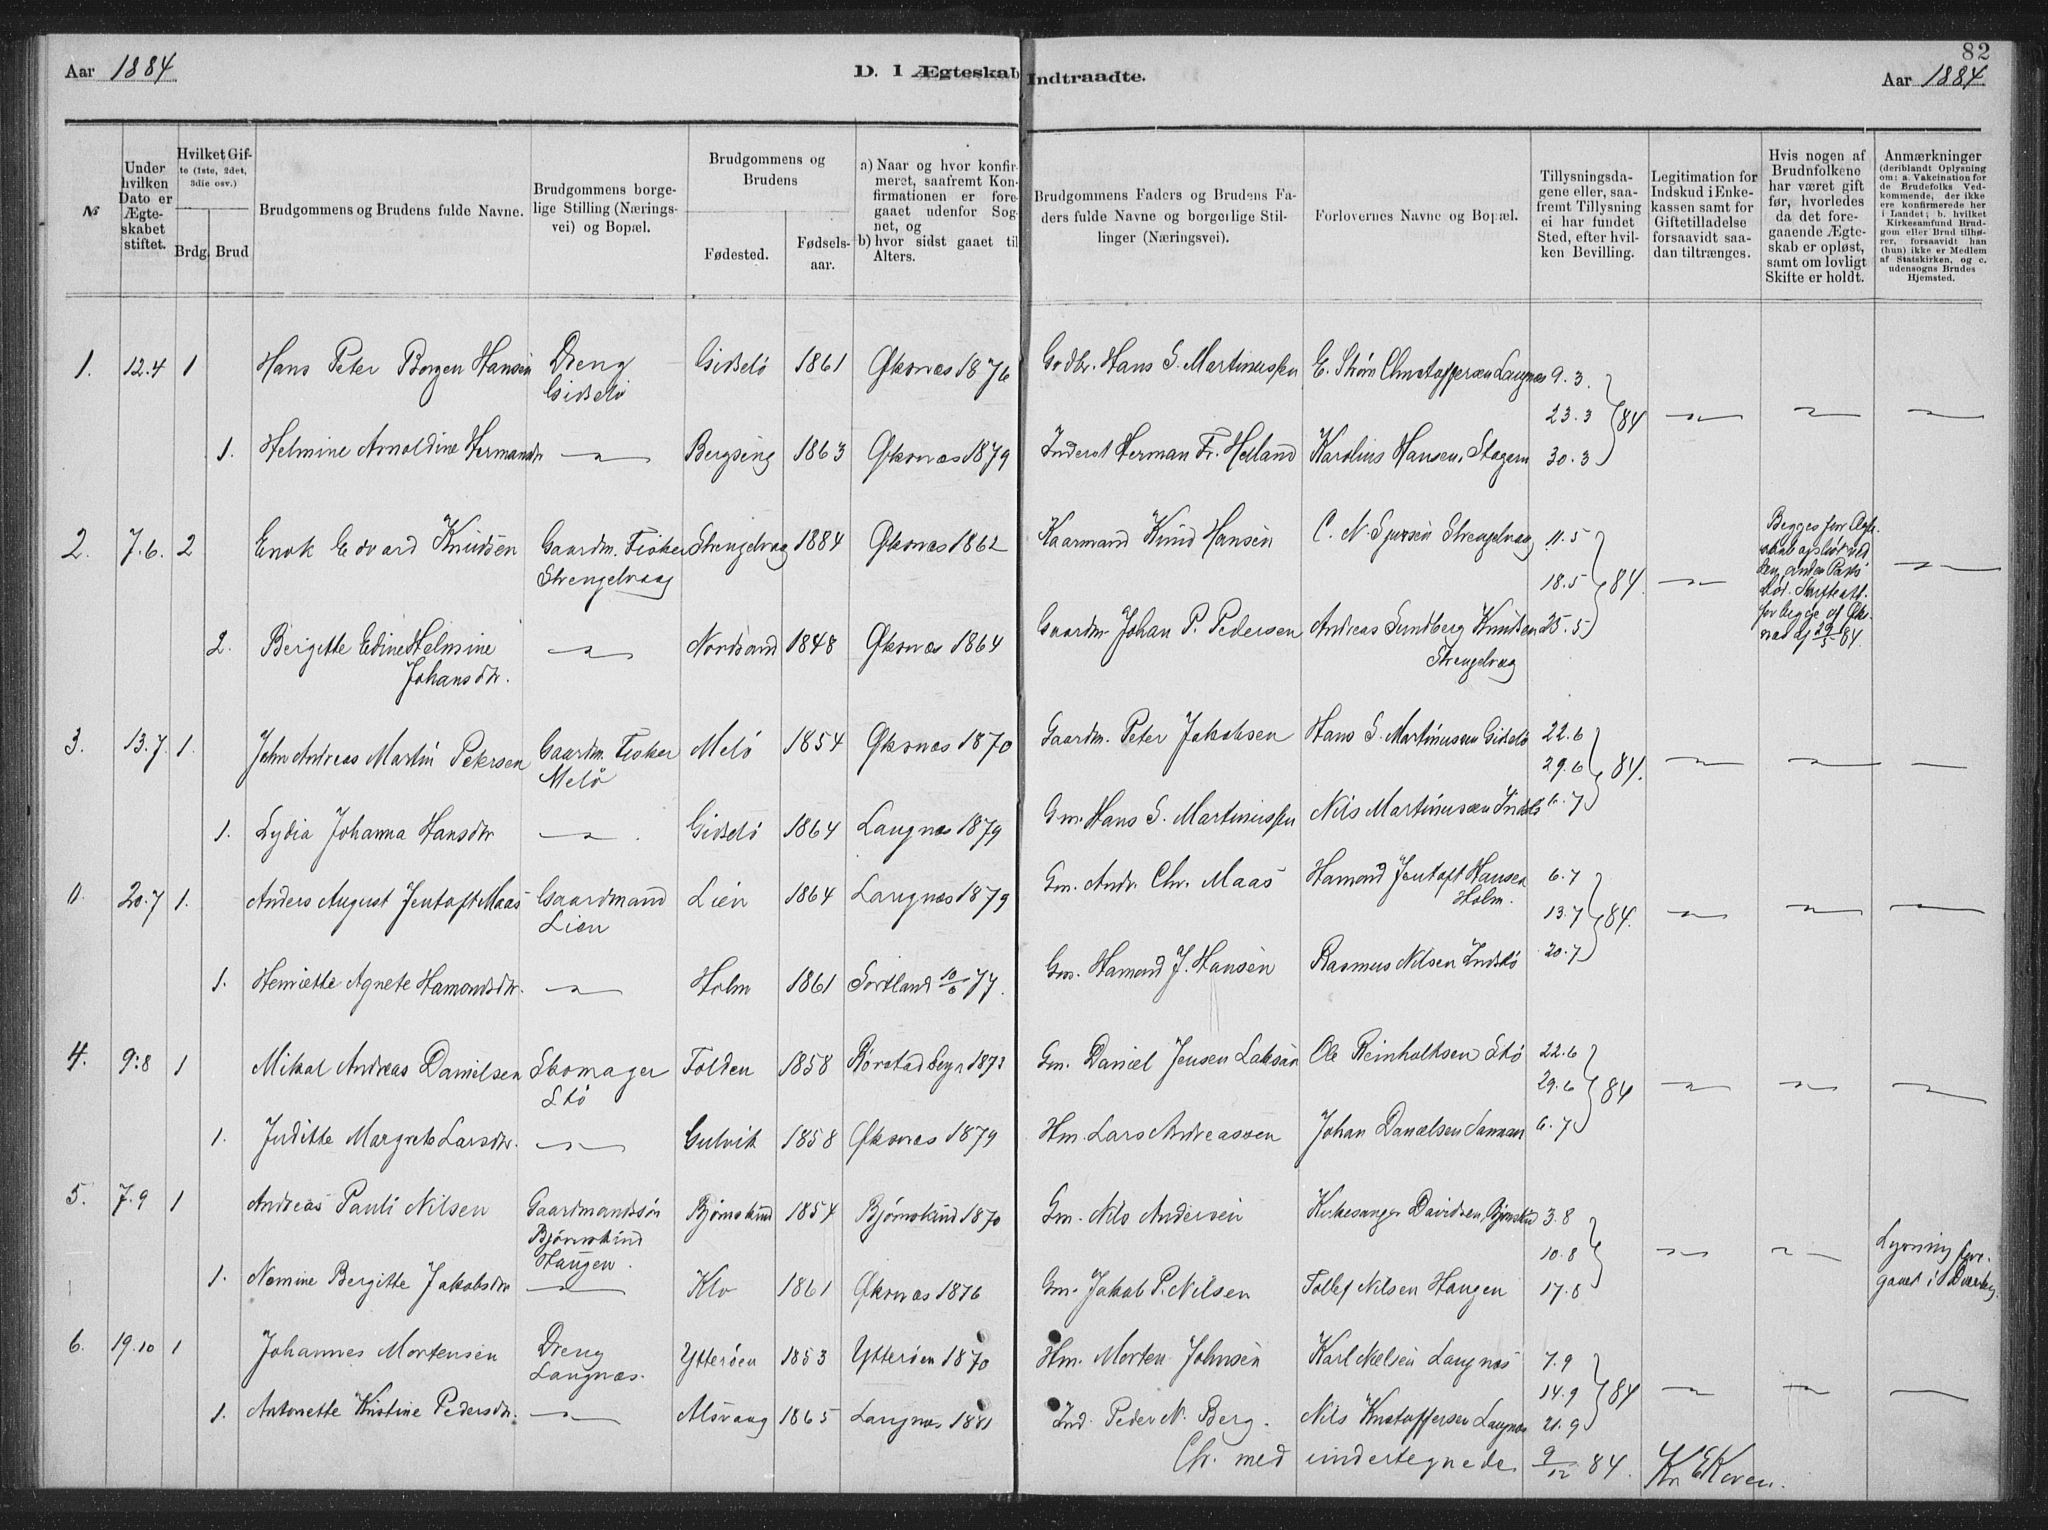 82
Aar 1884
D. I Ægteskab Indtraadte.
Aar 1884
№
Under hvilken Dato er Ægteskabet stiftet.
Hvilket Gifte (1ste, 2det, 3die osv.)
Brdg. Brud
Brudgommens og Brudens fulde Navne.
Brudgommens borgelige Stilling (Næringsvei) og Bopæl.
Brudgommens og Brudens
Fødested.
Fødselsaar.
a) Naar og hvor konfirmeret, saafremt Konfirmationen er foregaaet udenfor Sognet, og
b) hvor sidst gaaet til Alters.
Brudgommens Faders og Brudens Faders fulde Navne og borgerlige Stillinger (Næringsvei).
Forlovernes Navne og Bopæl.
Tillysningsdagene eller, saafremt Tillysning ei har fundet Sted, efter hvilken Bevilling.
Legitimation for Indskud i Enkekassen samt for Giftetilladelse forsaavidt saadan tiltrænges.
Hvis nogen af Brudnfolkene har været gift før, hvorledes da det foregaaende Ægteskab er opløst, samt om lovligt Skifte er holdt.
Anmærkninger (deriblandt Oplysning om: a. Vakcination for de Brudefolks Vedkommende, der ikke ere konfirmerede her i Landet; b. hvilket Kirkesamfund Brudgom eller Brud tilhører, forsaavidt han (hun) ikke er Medlem af Statskirken, og c. udensogns Brudes Hjemsted.
1. 12.4 1 Hans Peter Borgen Hansen Dreng Gidselø Gidselø 1861 Øksnæs 1876 Godbr. Hans S. Martinussen E. Strøm Christoffersen Laugnæs 9.3
23.3 84
1. Helmine Arnoldine Hermansdtr Bergseng 1863 Øksnæs 1879 Inderst Herman Fr. Helland Karolius Hansen, 30.3
2. 7.6. 2 Enok Edvard Knudsen Gaardm. Fisker Strengelvaag Strengelvag 1884 Øksnæs 1862 Kaarmand Knud Hansen C. N. Sjursen Strengelvaag 11.5
18.5 84.
Begges før Ægteskab opløst ved den anden Parts Død. Skifteatt. for begge af Øksnæs dg 29/5 84.
2. Bergitte Edine Helmine Johansdtr. Nordsand 1848 Øksnæs 1864 Gaardm. Johan P. Pedersen Andreas Sundberg Knudsen Strengelvag 25.5
3. 13.7 1. John Andreas Martin Petersen Gaardm. Fisker Melø Melø 1854 Øksnæs 1870 Gaardm. Peter Jakobsen Hans S. Martinussen Gidselø 22.6
29.6 84.
1. Lydia Johanna Hansdtr Gidselø 1864 Laugnæs 1879 Gm. Hans S. Martinussen Nils Martinussen 6.7
0. 20.7 1. Anders August Jentoft Maas Gaardmand Lien Lien 1864 Laugnæs 1879 Gm. Andr. Chr. Maas Hamond Jentoft Hansen Holm. 6.7
13.7 84.
1. Henriette Agnete Hamondsdtr. Holm 1861 Sortland 10/6 77. Gm. Hamond J. Hansen Rasmus Nilsen Indslø 20.7
4. 9:8 1 Mikal Andreas Danielsen Skomager Stø Folden 1858 Rørstad 1873 Gm. Daniel Jensen Ole Reinholtsen Stø 22.6
29.6 84
1. Juditte Margrete Larsdtr. Gulvik 1858 Øksnæs 1879 Hm. Lars Andreassen Johan Danielsen 6.7
5. 7.9 1 Andreas Pauli Nilsen Gaardmandssøn Bjørnskind Haugen. Bjørnskind 1854 Bjørnskind 1870 Gm. Nils Andersen Kirkesanger Davidsen, Bjørnskind 3.8
10.8
1. Nomine Bergitte Jakobsdtr Klo 1861 Øksnæs 1876 Gm. Jakob P. Nilsen Tollef Nilsen Haugen 17.8
Lysning foregaaet i Dverberg.
6. 19.10 1 Johannes Mortensen Dreng Laugnæs. Ytterøen 1853 Ytterøen 1870 Hm. Morten Johnsen Karl Nielsen Laugnæs 7.9
14.9 84
1. Antonette Kristine Pedersdtr. Alsvaag 1865 Laugnæs 1881 Ind. Peder N. Berg. Nils Kristoffersen Laugnæs 21.9
Chr. med undertegnede 9/12 84.